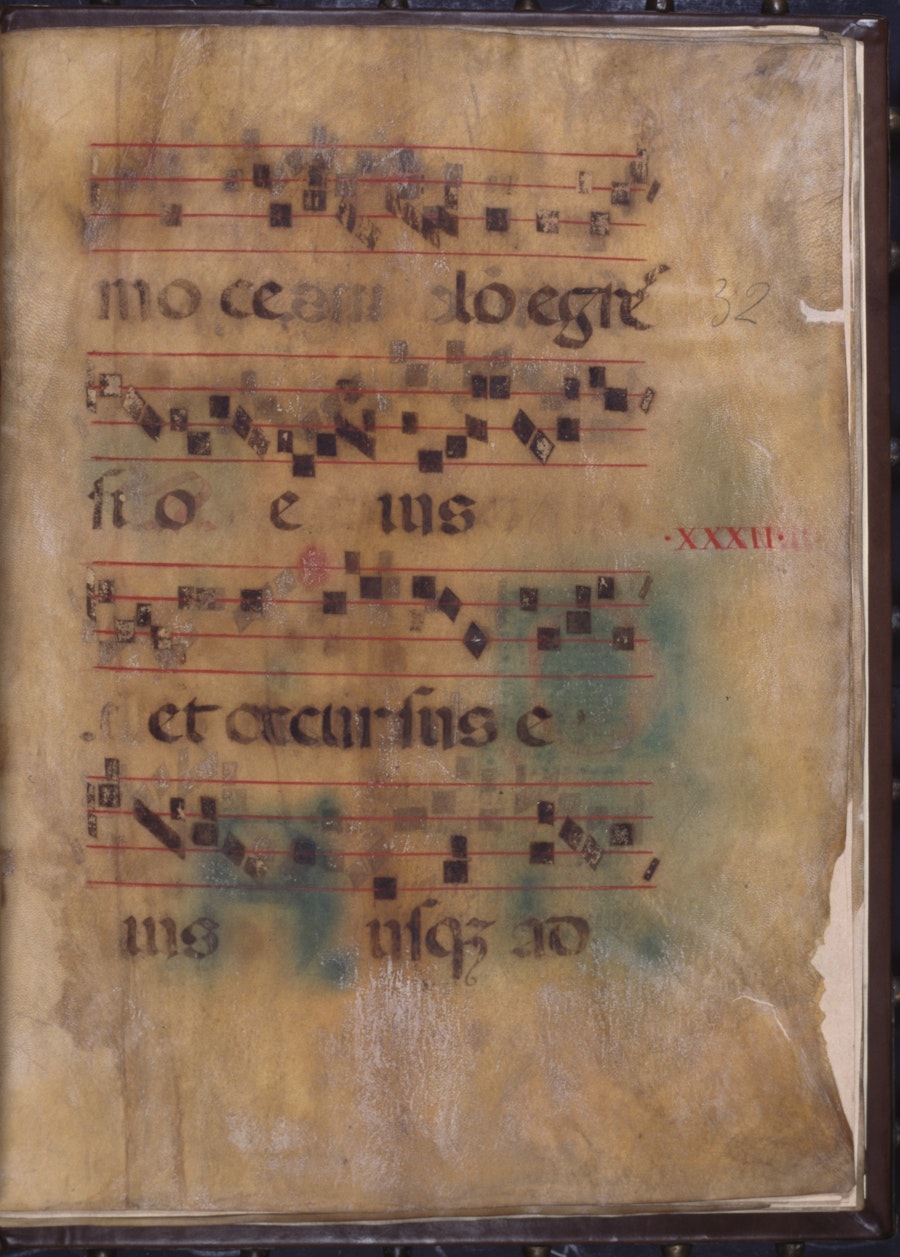 mo ce lo egre
32
ssi o e ius
·XXXII·
et occursus e
ius usqꝫ ad